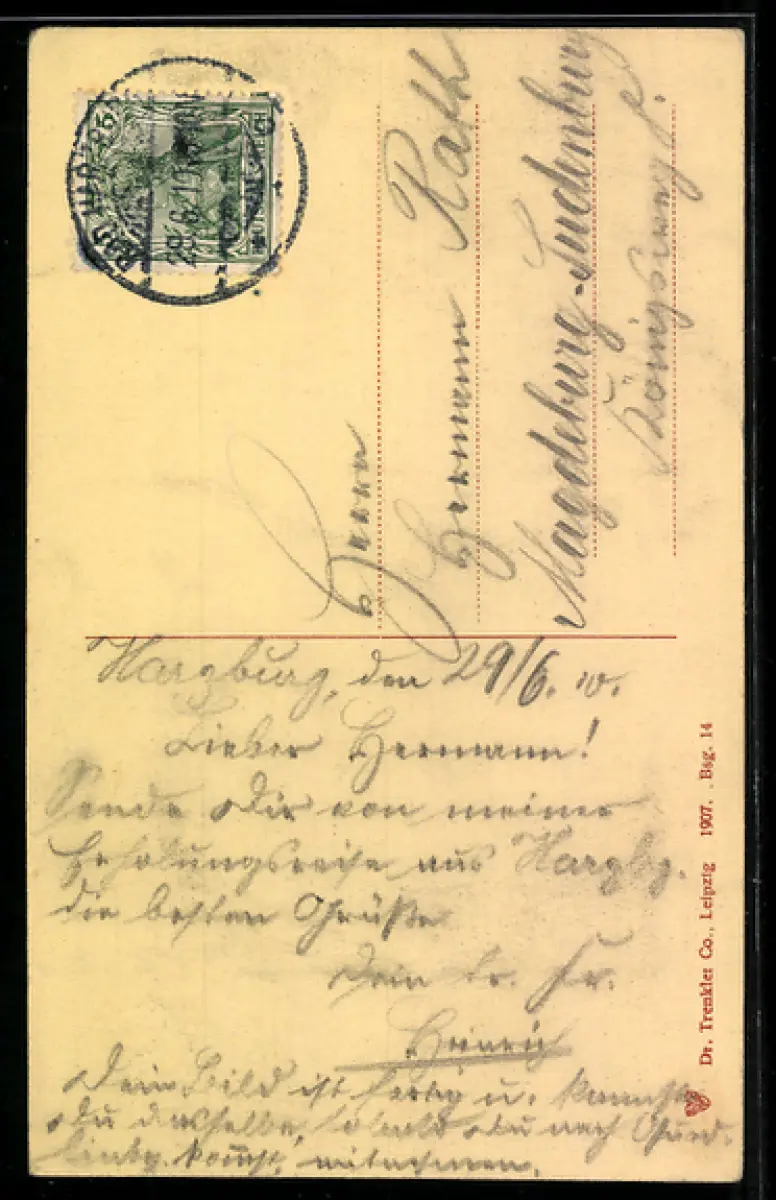 BAD HARZB
29.6.10
DEUTSCHES REICH
Herrn
Hermann Rath
Magdeburg-Sudenburg
Königsweg
Harzburg, den 29/6. 10.
Lieber Hermann!
Sende Dir von meiner
Erholungsreise aus Harzbg.
die besten Grüße
Dein tr. Fr.
Heinrich
Dein Bild ist fertig u. kannst
Du dasselbe, sobald Du nach Qued-
linbg. kommst, mitnehmen.
Dr. Trenkler Co., Leipzig 1907. Bsg. 14